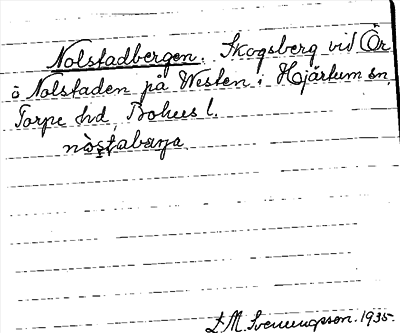 Nolstadbergen. Skogsberg vid Ör
å Nolstaden på Westen i Hjärtum sn,
Torpe hd, Bohus l.
L M. Svenungsson. 1935.